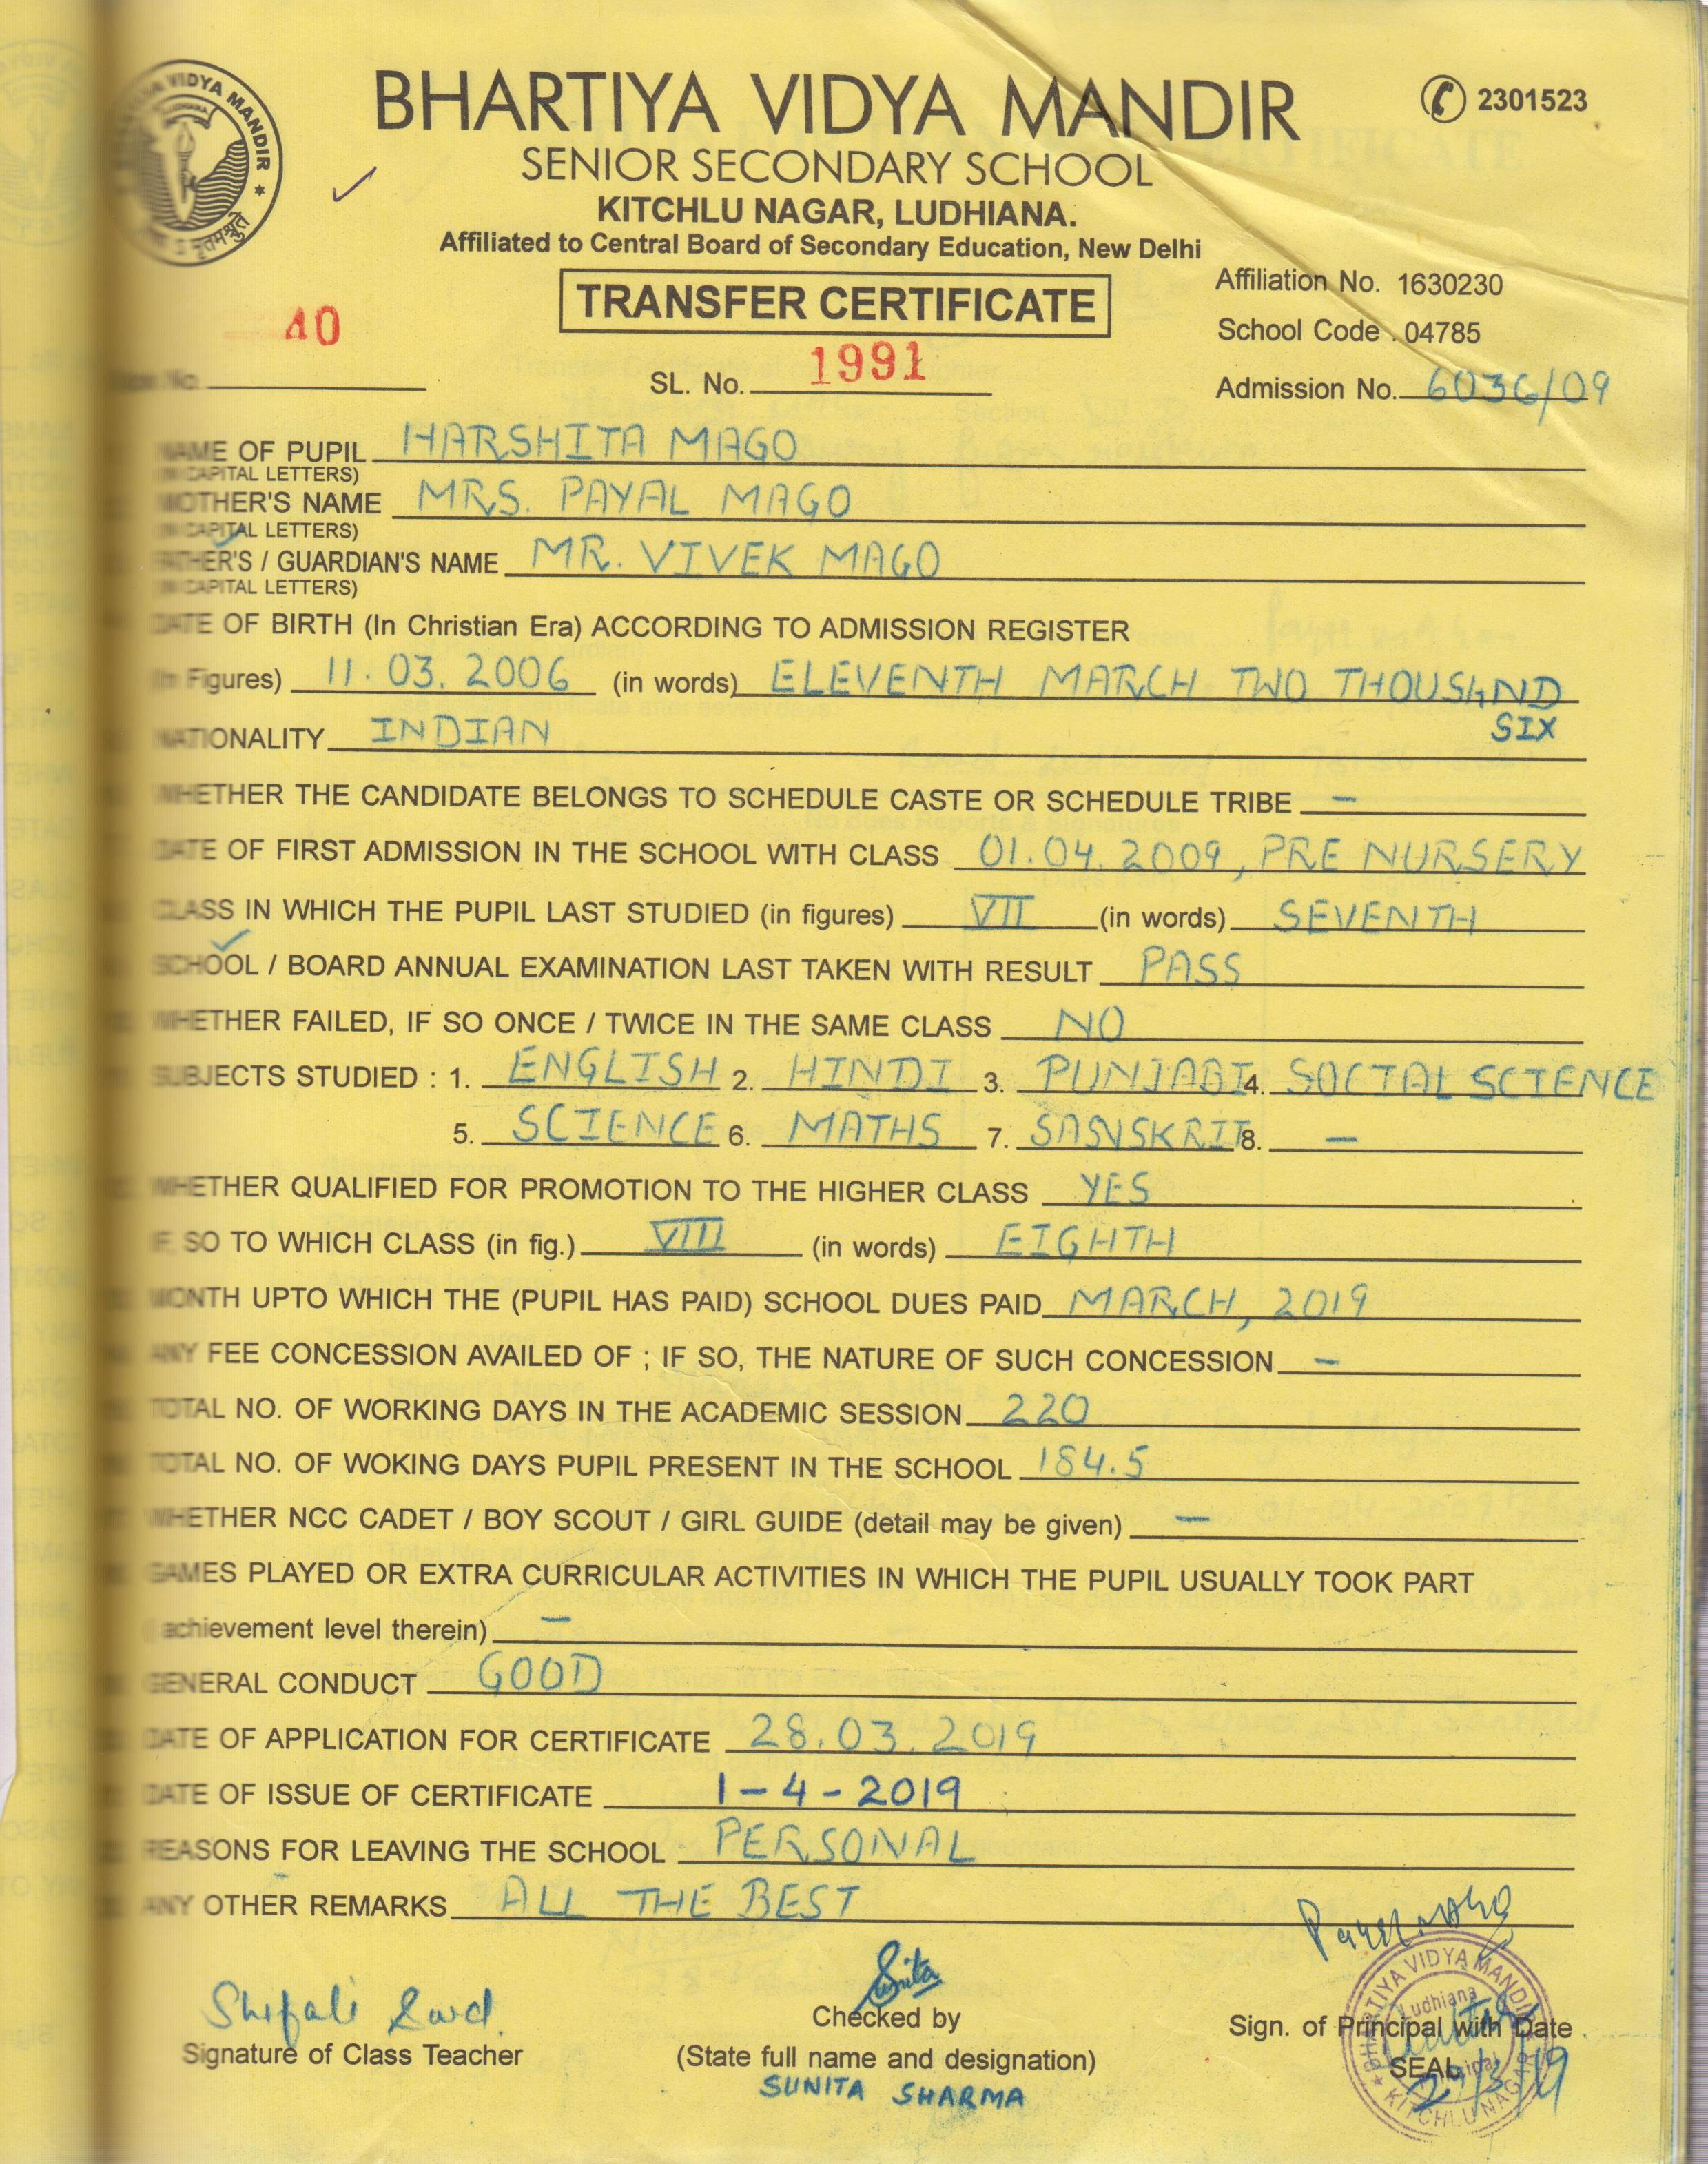 VIDYA MANDIR
BHARTIYA VIDYA MANDIR
2301523
SENIOR SECONDARY SCHOOL
KITCHLU NAGAR, LUDHIANA.
Affiliated to Central Board of Secondary Education, New Delhi
TRANSFER CERTIFICATE
Affiliation No. 1630230
School Code . 04785
40
No.
SL. No. 1991
Admission No. 6036/09
NAME OF PUPIL HARSHITA MAGO
(IN CAPITAL LETTERS)
MOTHER'S NAME MRS. PAYAL MAGO
(IN CAPITAL LETTERS)
FATHER'S / GUARDIAN'S NAME MR. VIVEK MAGO
(IN CAPITAL LETTERS)
DATE OF BIRTH (In Christian Era) ACCORDING TO ADMISSION REGISTER
(In Figures) 11.03.2006 (in words) ELEVENTH MARCH TWO THOUSAND
SIX
NATIONALITY INDIAN
WHETHER THE CANDIDATE BELONGS TO SCHEDULE CASTE OR SCHEDULE TRIBE –
DATE OF FIRST ADMISSION IN THE SCHOOL WITH CLASS 01.04.2009, PRE NURSERY
CLASS IN WHICH THE PUPIL LAST STUDIED (in figures) VII (in words) SEVENTH
SCHOOL / BOARD ANNUAL EXAMINATION LAST TAKEN WITH RESULT PASS
WHETHER FAILED, IF SO ONCE / TWICE IN THE SAME CLASS NO
SUBJECTS STUDIED : 1. ENGLISH 2. HINDI 3. PUNJABI 4. SOCIAL SCIENCE
5. SCIENCE 6. MATHS 7. SASNSKRIT 8. –
WHETHER QUALIFIED FOR PROMOTION TO THE HIGHER CLASS YES
IF, SO TO WHICH CLASS (in fig.) VIII (in words) EIGHTH
MONTH UPTO WHICH THE (PUPIL HAS PAID) SCHOOL DUES PAID MARCH, 2019
ANY FEE CONCESSION AVAILED OF ; IF SO, THE NATURE OF SUCH CONCESSION –
TOTAL NO. OF WORKING DAYS IN THE ACADEMIC SESSION 220
TOTAL NO. OF WOKING DAYS PUPIL PRESENT IN THE SCHOOL 184.5
WHETHER NCC CADET / BOY SCOUT / GIRL GUIDE (detail may be given) –
GAMES PLAYED OR EXTRA CURRICULAR ACTIVITIES IN WHICH THE PUPIL USUALLY TOOK PART
(achievement level therein) –
GENERAL CONDUCT GOOD
DATE OF APPLICATION FOR CERTIFICATE 28.03.2019
DATE OF ISSUE OF CERTIFICATE 1-4-2019
REASONS FOR LEAVING THE SCHOOL PERSONAL
ANY OTHER REMARKS ALL THE BEST
Payal MAGO
Shefali Sood.
Sunita
Signature of Class Teacher
Checked by
(State full name and designation)
SUNITA SHARMA
Sign. of Principal with Date
SEAL
BHARTIYA VIDYA MANDIR
Ludhiana
Principal
KITCHLU NAGAR